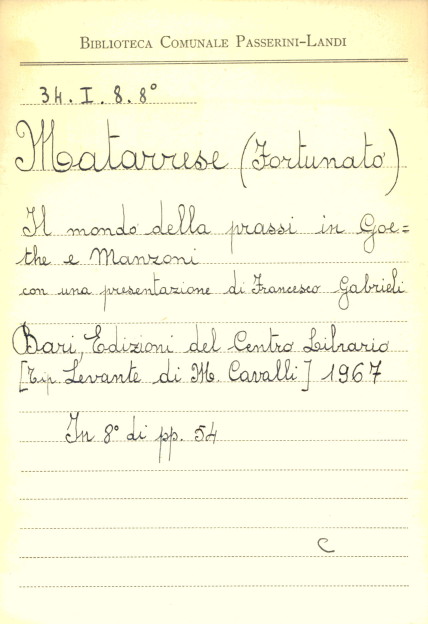 BIBLIOTECA COMUNALE PASSERINI-LANDI
34. I. 8. 8°
Matarrese (Fortunato)
Il mondo della prassi in Goe=
the e Manzoni
con una presentazione di Francesco Gabrieli
Bari, Edizioni del Centro Librario
[Tip. Levante di M. Cavalli] 1967
In 8° di pp. 54
C